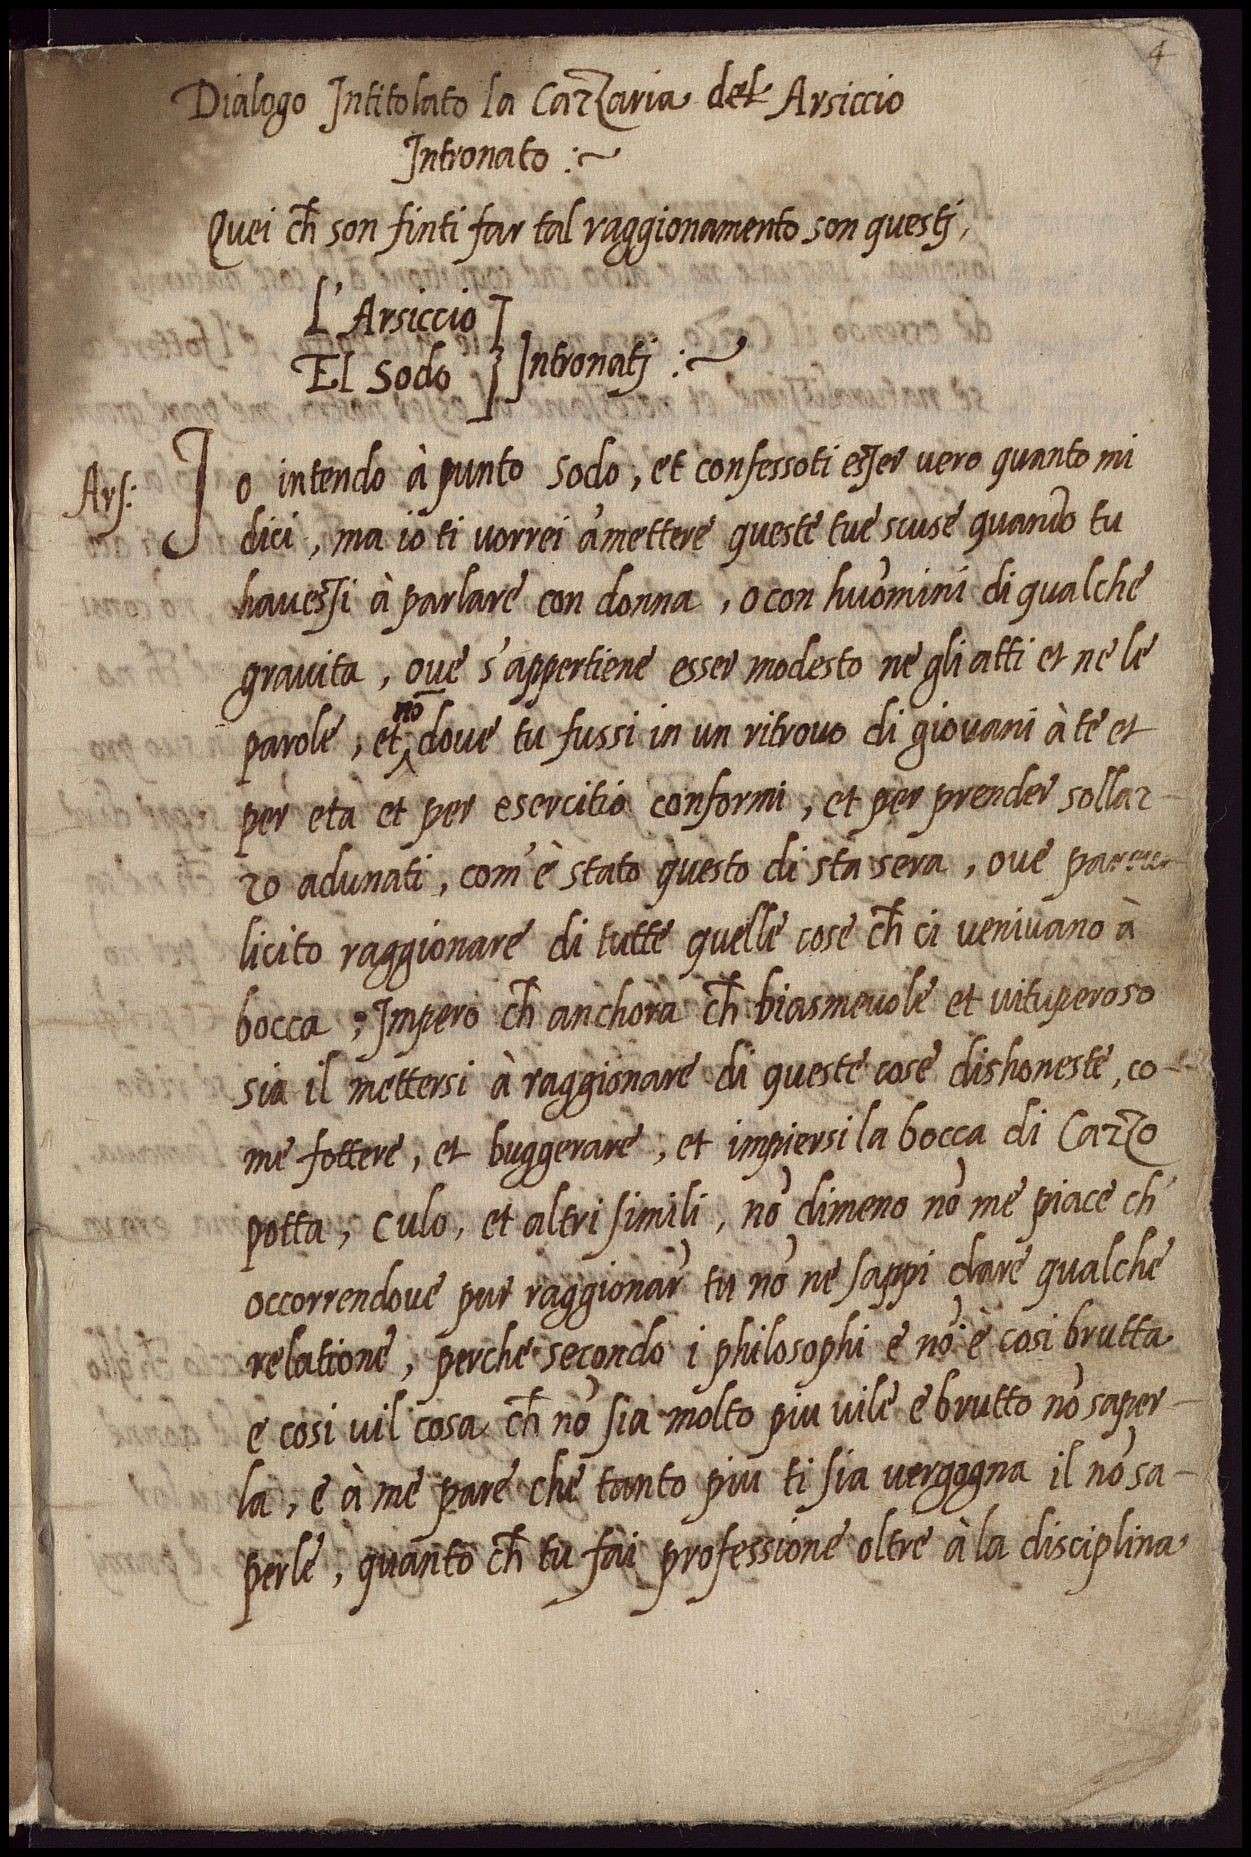 4
Dialogo Intitolato la Cazzaria del Arsiccio
Intronato :~
Quei ch̄ son finti far tal raggionamento son questj,
L'Arsiccio
El Sodo } Intronatj :~
Ars: Io intendo à punto Sodo, et confessoti esser vero quanto mi
dici, ma io ti vorrei amettere queste tue scuse quando tu
havessi à parlare con donna, o con huomini di qualche
gravita, ove s'appertiene esser modesto ne gli atti et ne le
parole, et nō dove tu fussi in un ritrovo di giovani à te et
per eta et per esercitio conformi, et per prender sollaz-
zo adunati, com'è stato questo di sta sera, ove
licito raggionare di tutte quelle cose ch̄ ci venivano à
bocca; Impero ch̄ anchora ch̄ biasmevole et vituperoso
sia il mettersi à raggionare di queste cose dishoneste, co-
me fottere, et buggerare, et impiersi la bocca di Cazzo
potta, culo, et altri simili, nō dimeno nō me piace ch̄
occorrendove pur raggionar tu nō ne sappi dare qualche
relatione, perche secondo i philosophi e nō è cosi brutta
e cosi vil cosa ch̄ nō sia molto piu vile e brutto nō saper-
la, e à me pare che tanto piu ti sia vergogna il nō sa-
perle, quanto ch̄ tu fai professione oltre à la disciplina